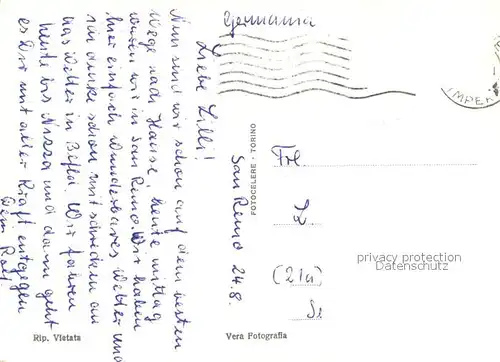 Germania
San Remo 24.8.
Liebe Lilli!
Nun sind wir schon auf dem besten
Wege nach Hause, heute mittag
waren wir in San Remo. Wir haben
hier einfach wunderbares Wetter und
ich denke schon mit schrecken an
das Wetter in Bifld. Wir fahren
heute bis Nizza und dann geht
es Dir mit aller Kraft entgegen
Dein
Frl
(21a)
FOTOCELERE - TORINO
IMPER
privacy protection
Datenschutz
Rip. Vietata
Vera Fotografia